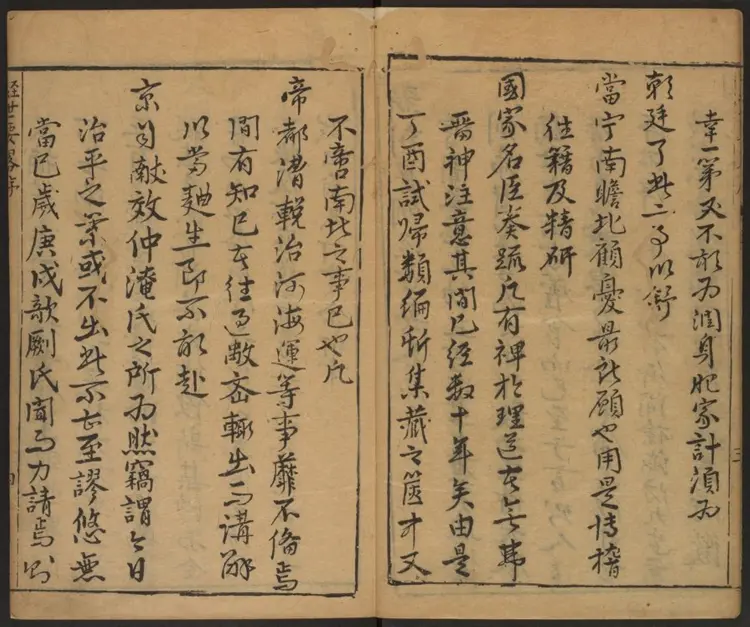 幸一第又不能为潤身肥家計須为
朝廷了此二事以舒
當宁南瞻北顧憂最託願也用是博稽
往籍及精研
國家名臣奏疏凡有裨於理道者無弗
畱神注意其間已經数十年矣由是
丁酉試歸類編斯集藏之篋中又
不啻南北之事已也凡
帝都漕輓治河海運等事靡不俻焉
間有知已者往過敝齋輒出而講解
以當麯生即不能赴
京自献效仲淹氏之所为然竊謂今日
治平之策或不出此不亡至謬悠無
當已歲庚戌歙劂氏聞而力請焉則
經世要畧序
三
四